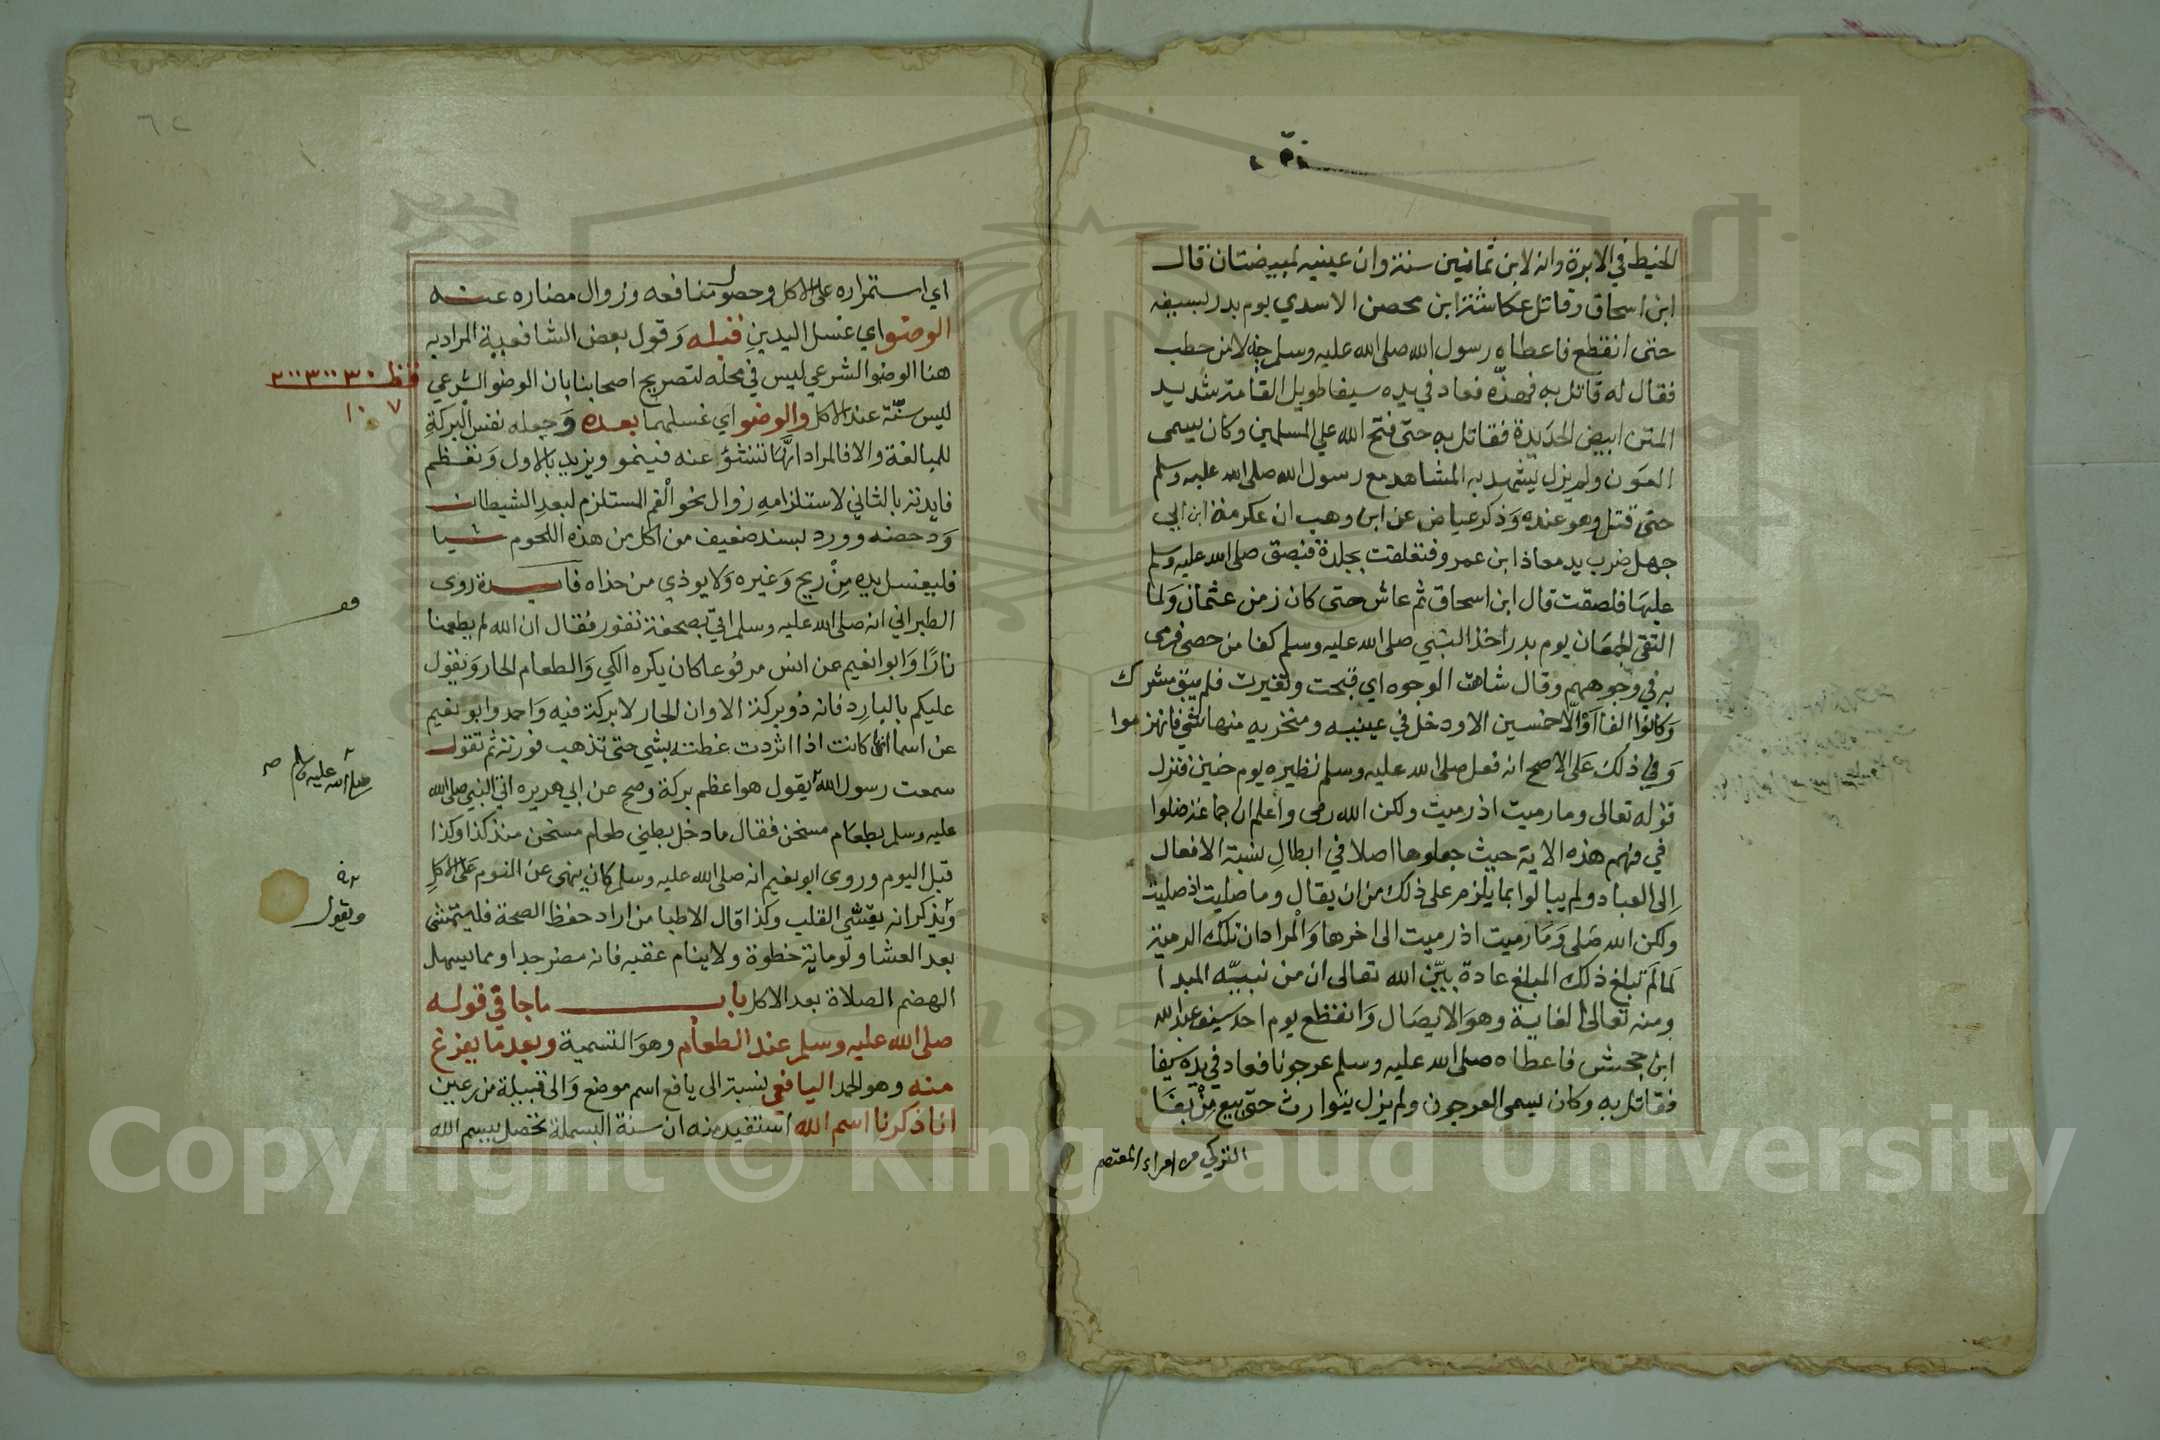 الخيط في الابرة وانه لابن ثمانين سنة وان عينيه لمبيضتان قال
ابن اسحاق وقاتل عكاشة ابن محصن الاسدي يوم بدر بسيفه
حتى انقطع فاعطاه رسول الله صلى الله عليه وسلم جذلا من حطب
فقال له قاتل به فهزه فعاد في يده سيفا طويل القامة شديد
المتن ابيض الحديدة فقاتل به حتى فتح الله على المسلمين وكان يسمى
العون ولم يزل يشهد به المشاهد مع رسول الله صلى الله عليه وسلم
حتى قتل وهو عنده وذكر عياض عن ابن وهب ان عكرمة ابن ابي
جهل ضرب يد معاذ ابن عمرو فتعلقت بجلدة فبصق صلى الله عليه وسلم
عليها فلصقت قال ابن اسحاق ثم عاش حتى كان زمن عثمان ولما
التقى الجمعان يوم بدر اخذ النبي صلى الله عليه وسلم كفا من حصى فرمى
به في وجوههم وقال شاهت الوجوه اي قبحت وتغيرت فلم يبق مشرك
وكانوا الفا او الا خمسين الا ودخل في عينيه ومنخريه منها شي فانهزموا
وفي ذلك على الاصح انه فعل صلى الله عليه وسلم نظيره يوم حنين فنزل
قوله تعالى وما رميت اذ رميت ولكن الله رمى واعلم ان جماعة ضلوا
في فهم هذه الاية حيث جعلوها اصلا في ابطال نسبة الافعال
الى العباد ولم يبالوا بما يلزم على ذلك من ان يقال وما صليت اذ صليت
ولكن الله صلى وما رميت اذ رميت الى اخرها والمراد ان تلك الرمية
لما لم تبلغ ذلك المبلغ عادة بين الله تعالى ان من نبيه المبدا
ومنه تعالى الغاية وهو الايصال وانقطع يوم احد سيف عبد الله
ابن جحش فاعطاه صلى الله عليه وسلم عرجونا فعاد في يده سيفا
فقاتل به وكان يسمى العرجون ولم يزل يتوارث حتى بيع من بغا
التركي من امراء المعتصم
٦٢
اي استمراره على الاكل وحصول منافعه وزوال مضاره عنه
الوضو اي غسل اليدين قبله وقول بعض الشافعية المراد به
هنا الوضو الشرعي ليس في محله لتصريح اصحابنا بان الوضو الشرعي
ليس سنة عند الاكل والوضو اي غسلهما بعده وجعله نفس البركة
للمبالغة والا فالمراد انها تنشؤ عنه فينمو ويزيد بالاول وتعظم
فايدته بالثاني لاستلزامه زوال نحو الغم المستلزم لبعد الشيطان
ودحضه وورد بسند ضعيف من اكل من هذه اللحوم شيا
فليغسل يده من ريح وغيره ولا يوذي من حذاه فايدة روى
الطبراني انه صلى الله عليه وسلم اتي بصحفة تفور فقال ان الله لم يطعمنا
نارا وابو نعيم عن انس مرفوعا كان يكره الكي والطعام الحار ويقول
عليكم بالبارد فانه ذو بركة الا وان الحار لا بركة فيه واحمد وابو نعيم
عن اسما انها كانت اذا اثردت غطته بشي حتى تذهب فورته ثم تقول
سمعت رسول الله يقول هو اعظم بركة وصح عن ابي هريره اتي النبي صلى الله
عليه وسلم بطعام مسخن فقال ما دخل بطني طعام مسخن منذ كذا وكذا
قبل اليوم وروى ابو نعيم انه صلى الله عليه وسلم كان ينهى عن النوم على الاكل
ويذكر انه يقسي القلب وكذا قال الاطبا من اراد حفظ الصحة فليتمشى
بعد العشا ولو ماية خطوة ولا ينام عقبه فانه مضر جدا ومما يسهل
الهضم الصلاة بعد الاكل باب ما جا في قوله
صلى الله عليه وسلم عند الطعام وهو التسمية وبعد ما يفرغ
منه وهو الحمد اليافعي نسبة الى يافع اسم موضع والى قبيلة من رعين
انا ذكرنا اسم الله استفيد منه ان سنة البسملة تحصل ببسم الله
٢٠٠٣٠٠٣٠
١٠٧
قف
صلى الله عليه وسلم صح
ويقول
Copyright © King Saud University
1957